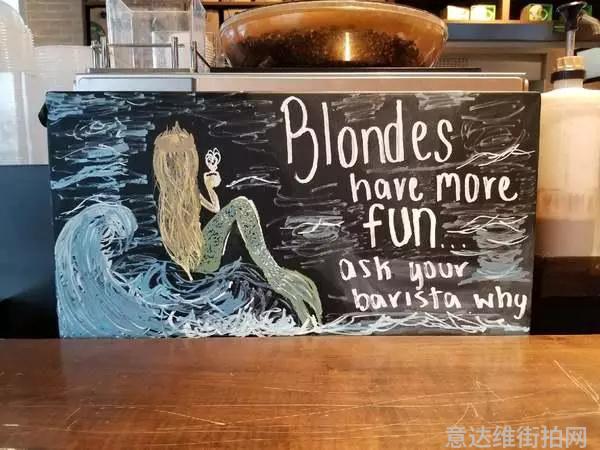 Blondes
have more
fun...
ask your
barista why
意达维街拍网